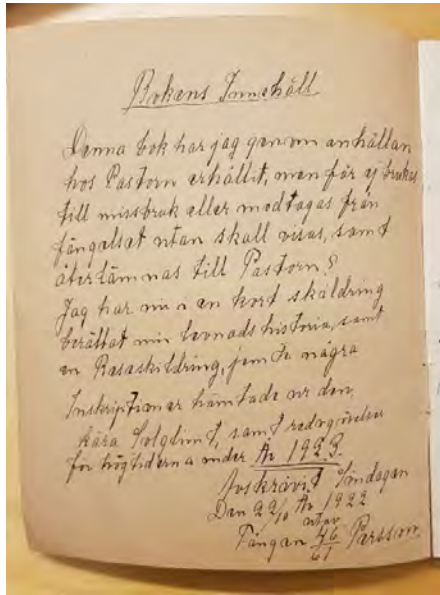 Bokens Innehåll
Denna bok har jag genom anhållan
hos Pastorn erhållit, men får ej brukas
till missbruk eller medtagas från
fängelset utan skall visas, samt
återlämnas till Pastorn?
Jag har nu i en kort skäldring
berättat min levnads historia, samt
en Resaskildring, jemte några
Inskriptioner hämtade ur den,
kära Solglimt, samt redogörelse
för högtiderna under År 1923.
Avskrivit Söndagen
Den 22/10 År 1922
utav
Fången 46/61 Persson.